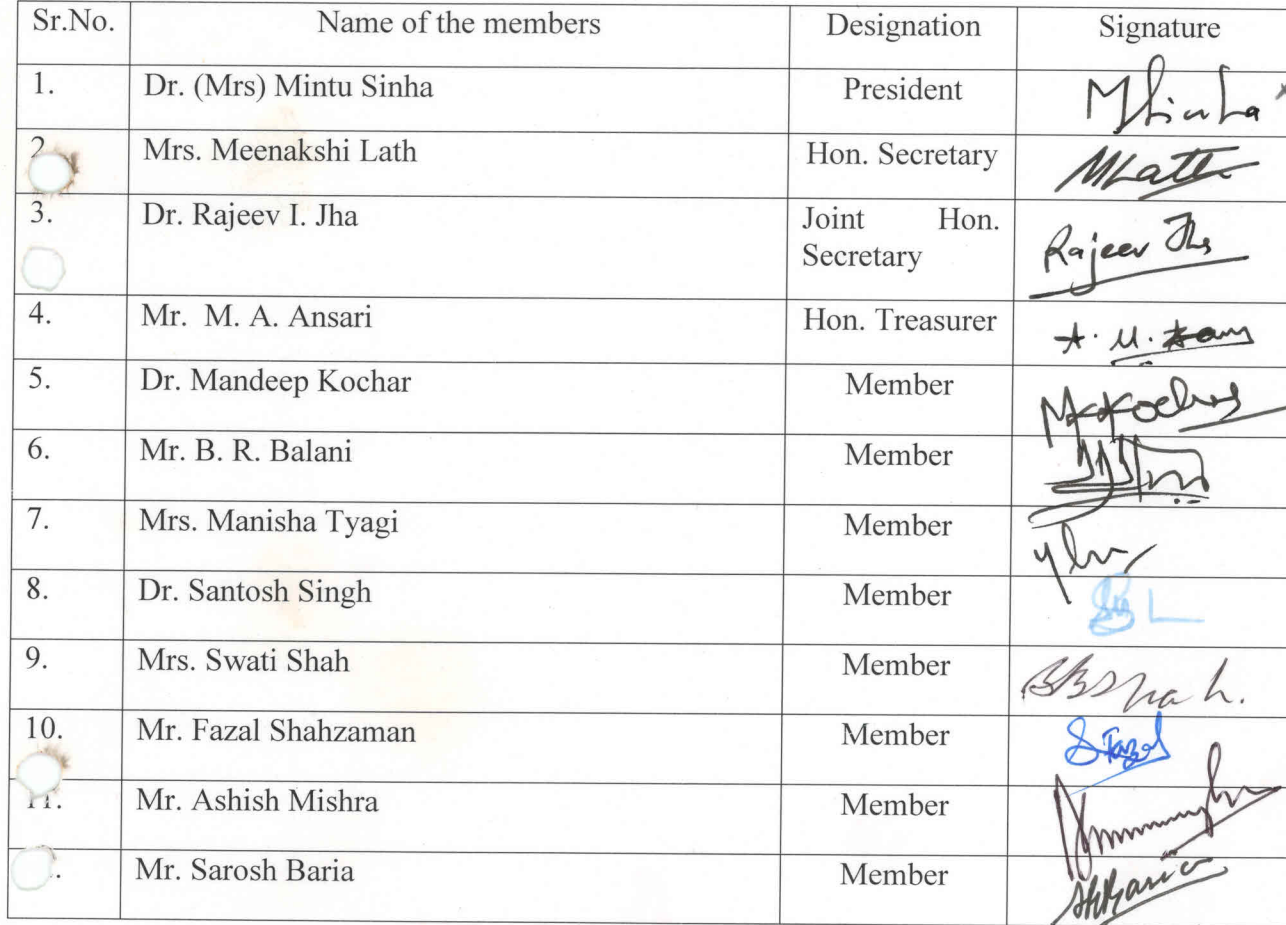 Sr.No. Name of the members Designation Signature
1. Dr. (Mrs) Mintu Sinha President MSinha
2 Mrs. Meenakshi Lath Hon. Secretary MLath
3. Dr. Rajeev I. Jha Joint Hon.
Secretary Rajeev Jha
4. Mr. M. A. Ansari Hon. Treasurer
5. Dr. Mandeep Kochar Member MKochar
6. Mr. B. R. Balani Member
7. Mrs. Manisha Tyagi Member
8. Dr. Santosh Singh Member
9. Mrs. Swati Shah Member
10. Mr. Fazal Shahzaman Member S Fazal
11. Mr. Ashish Mishra Member
. Mr. Sarosh Baria Member